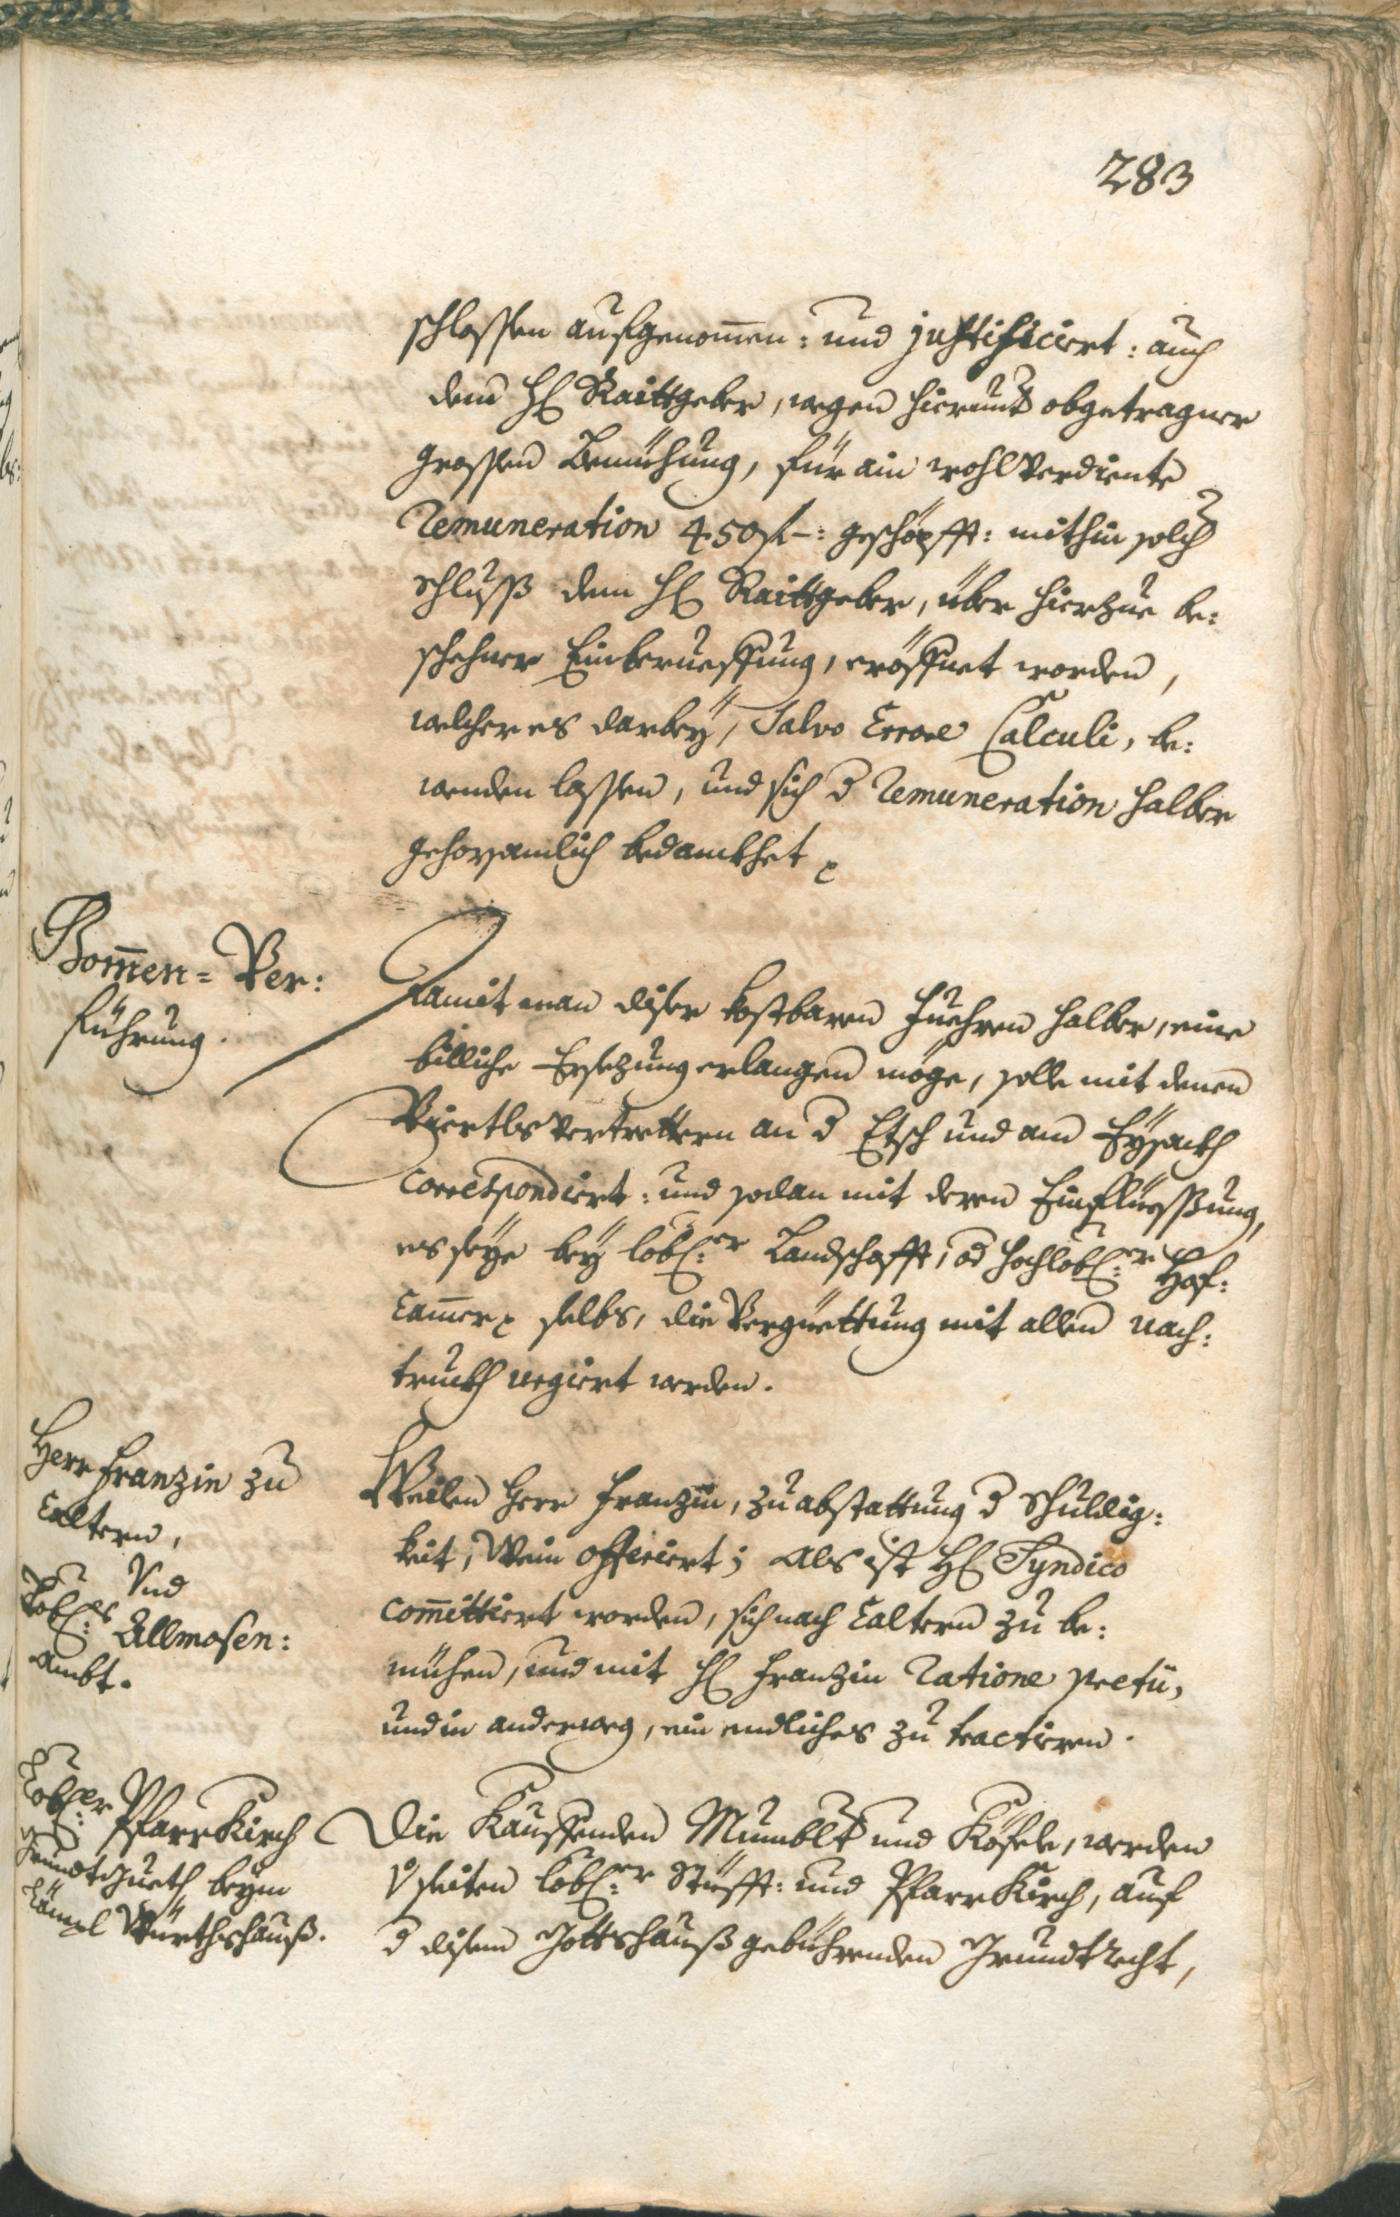 283
schlossen aufgenom̄en: und justificiert: auch
dem H: Raittgeber, wegen hierundt obgetragner
grossen Bemühung, für ain wohl verdiente
Remuneration 450 f –: geschöpfft: mithin solch
schluß dem H: Raittgeber, über hierzue be:
schehner Einberueffung, eröffnet worden,
welcher es darbey, Salvo Errore Calculi, be:
wenden lassen, und sich d Remuneration halber
gehorsamlich bedanckhet
Bom̄en-Ver:
führung.
Damit man diser kostbaren Fuehren halber, eine
billiche Ersezung erlangen möge, solle mit denen
Viertls vertrettern an d Etsch und am Eysackh
correspondiert: und sodan mit deren Einfluessung,
es seye bey löbl:er Landschafft, od hochlöbl:er Hof:
Cam̄er selbs, die Vergüettung mit allen nach:
truckh urgiert werden.
Herr Franzin zu
Caltern,
Und
Löbl:es Allmosen:
ambt.
Weilen Herr Franzin, zu abstattung d Schuldig:
keit, Wein offeriert; Als ist H: Syndico
com̄ittiert worden, sich nach Caltern zu be:
mühen, und mit H: Franzin Ratione pretii,
und in anderweg, ein endliches zu tractieren.
Löbl:er PfarrKirch
Grundt Zueth beym
Lämpl Würthshauß.
Die Kauffenden Mumblt und Köfele, werden
v seiten löbl:er Stüfft: und PfarrKirch, auf
d disem Gottshauß gebührenden Grundtrecht,